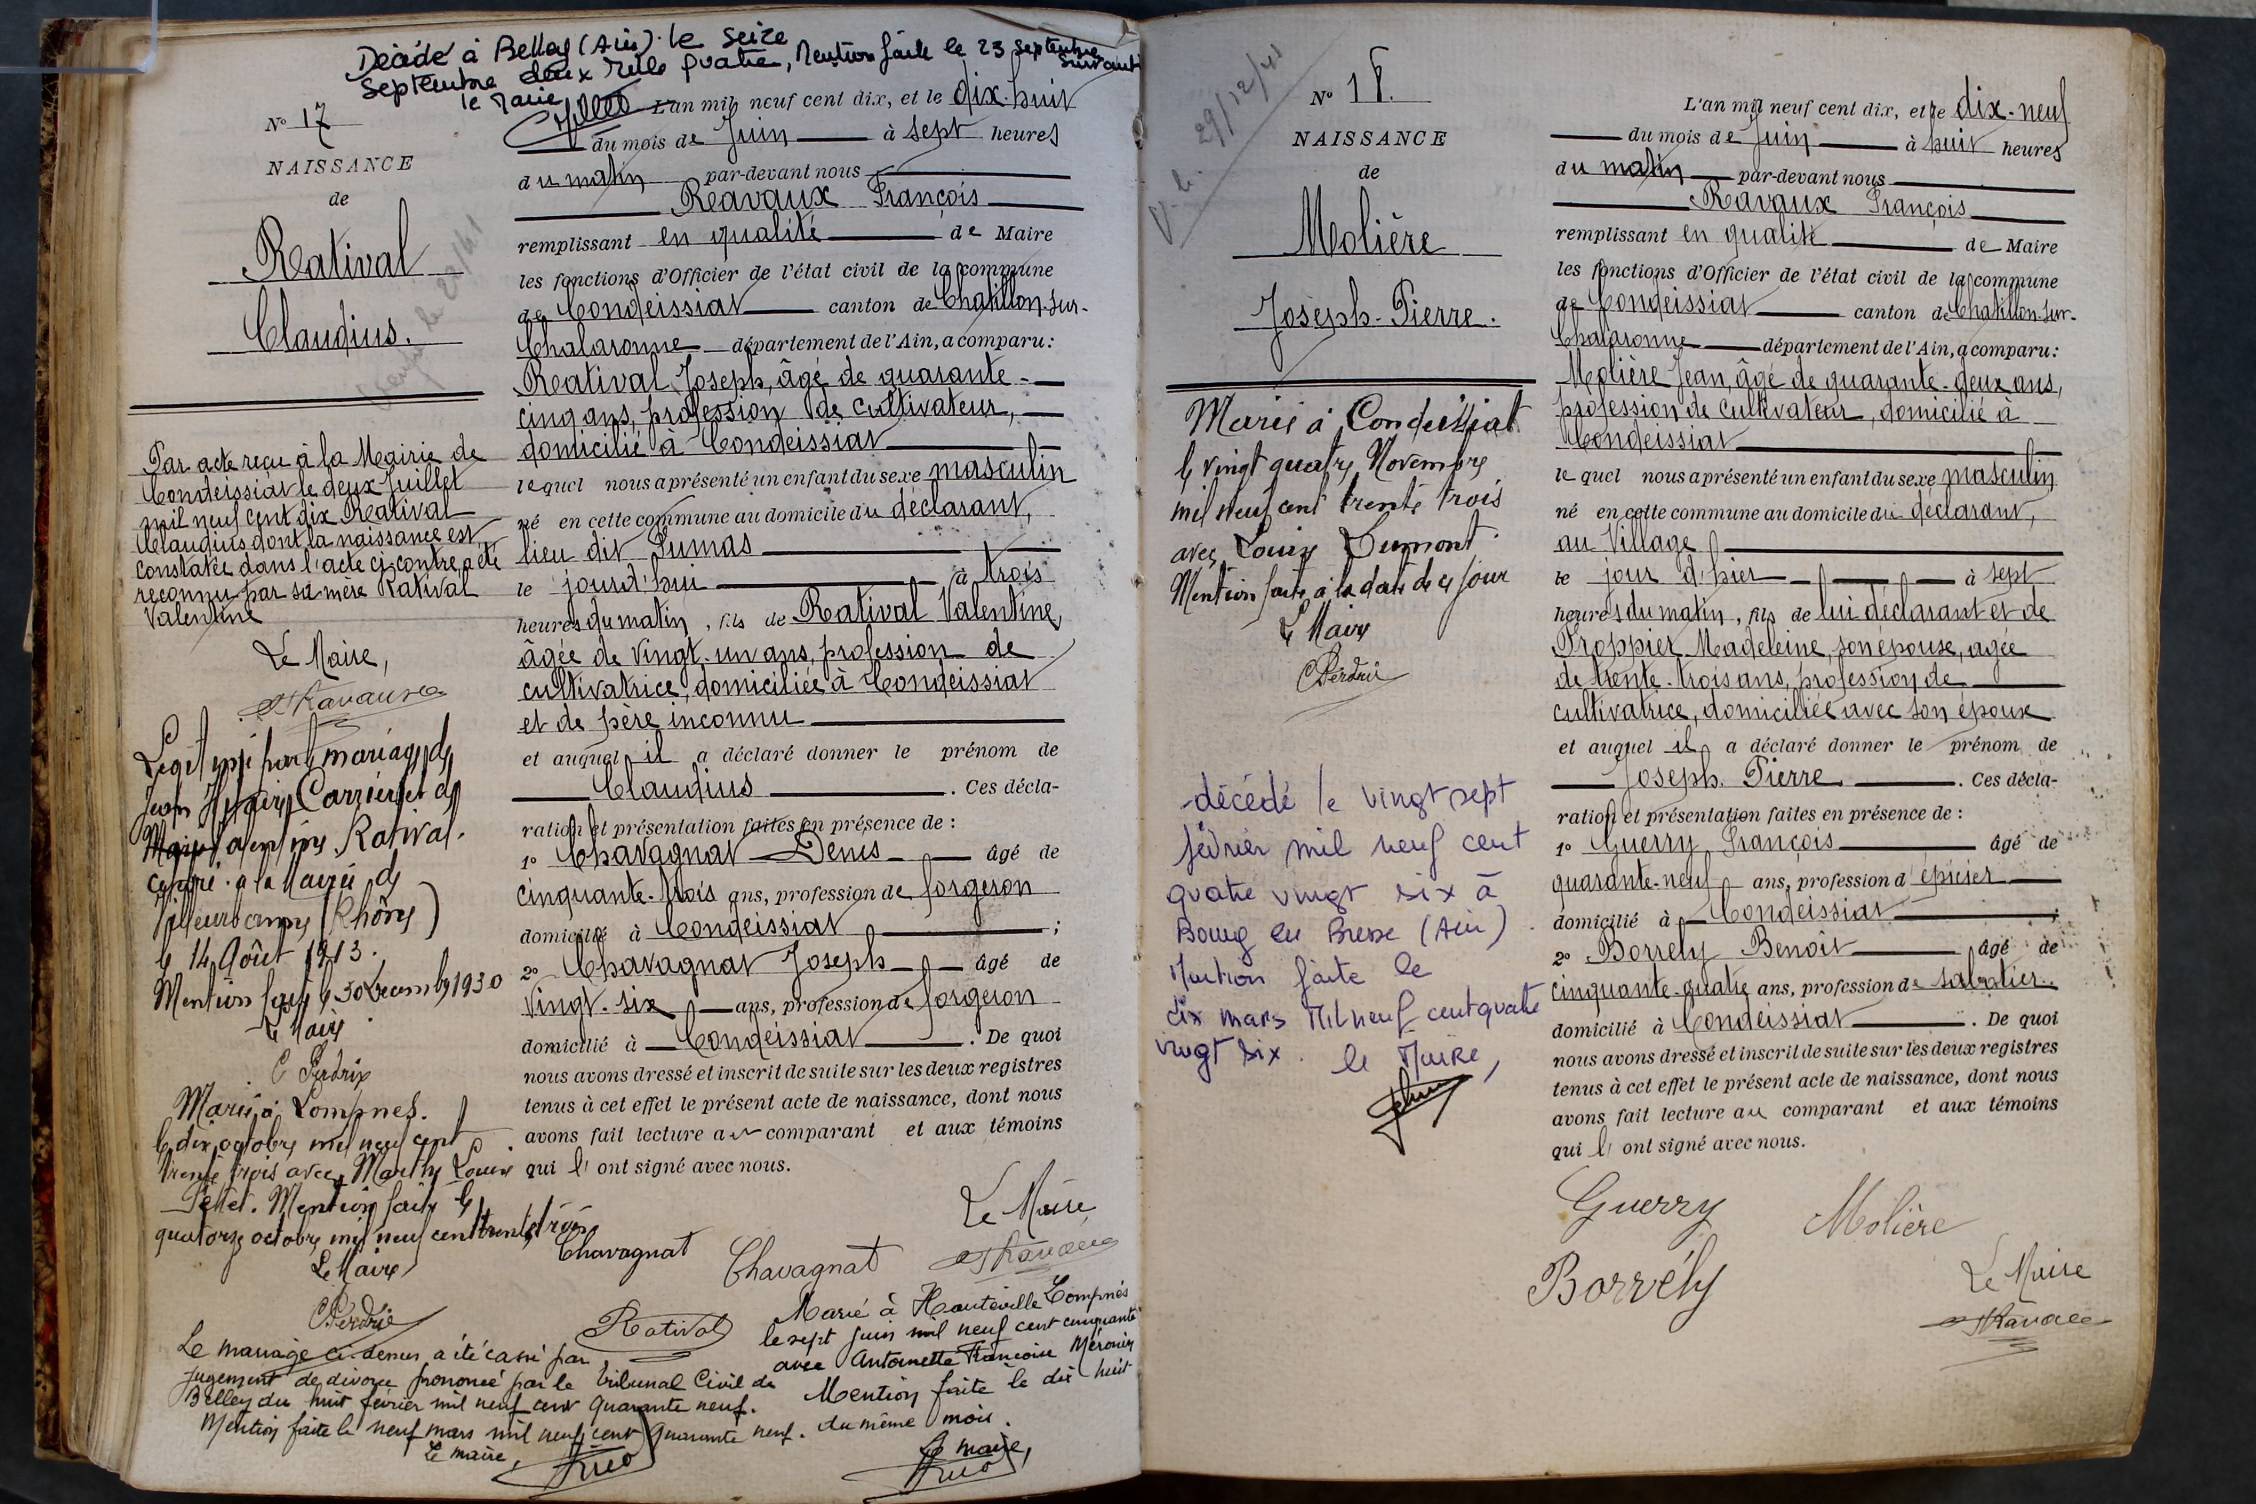 Décédé à Belley (Ain) le seize
septembre deux mille quatre, Mention faite le 23 septembre
suivant
le Maire
N° 17
NAISSANCE
de
Rativat
Claudius.
Par acte reçu à la Mairie de
Condeissiat le deux Juillet
mil neuf cent dix Rativat
Claudius dont la naissance est
constatée dans l'acte ci-contre a été
reconnu par sa mère Rativat
Valentine
Le Maire,
Ravaux
Légitimé par le mariage de
Jean Carrier et de
Marie Valentine Rativat.
célébré à la Mairie de
Villeurbanne (Rhône)
le 14 Août 1913.
Mention faite le 30 Decembre 1930
Le Maire
C Perdrix
Marié à Lompnes.
le dix octobre mil neuf cent
trente trois avec Marthe Louise
Pellet. Mention faite le
quatorze octobre mil neuf cent trente trois
Le Maire
C Perdrix
Le mariage ci-dessus a été cassé par
jugement de divorce prononcé par le Tribunal Civil de
Belley du huit février mil neuf cent quarante neuf.
Mention faite le neuf mars mil neuf cent quarante neuf.
Le maire,
L'an mil neuf cent dix, et le dix-huit
du mois de Juin à sept heures
du matin par-devant nous
Ravaux François
remplissant en qualité de Maire
les fonctions d'Officier de l'état civil de la commune
de Condeissiat canton de Chatillon-sur-
Chalaronne département de l'Ain, a comparu:
Rativat Joseph, âgé de quarante-
cinq ans, profession de cultivateur,
domicilié à Condeissiat
lequel nous a présenté un enfant du sexe masculin
né en cette commune au domicile du déclarant,
lieu dit Dumas
le jourd'hui à trois
heures du matin, fils de Rativat Valentine,
âgée de vingt-un ans, profession de
cultivatrice, domiciliée à Condeissiat
et de père inconnu
et auquel il a déclaré donner le prénom de
Claudius. Ces décla-
ration et présentation faites en présence de :
1° Chavagnat Denis âgé de
cinquante-trois ans, profession de forgeron
domicilié à Condeissiat ;
2° Chavagnat Joseph âgé de
vingt-six ans, profession de forgeron
domicilié à Condeissiat. De quoi
nous avons dressé et inscrit de suite sur les deux registres
tenus à cet effet le présent acte de naissance, dont nous
avons fait lecture au comparant et aux témoins
qui l' ont signé avec nous.
Le Maire
Chavagnat Chavagnat Ravaux
Rativat
Marié à Hauteville Lompnés
le sept juin mil neuf cent cinquante
avec Antoinette Françoise Méronier
Mention faite le dix huit
du même mois.
Le maire,
V. le 29/12/41
N° 18.
NAISSANCE
de
Molière
Joseph-Pierre.
Marié à Condeissiat
le vingt quatre Novembre
mil neuf cent trente trois
avec Louise Dumont
Mention faite à la date de ce jour
Le Maire
C Perdrix
décédé le vingt sept
février mil neuf cent
quatre vingt six à
Bourg en Bresse (Ain)
Mention faite le
dix mars Mil neuf cent quatre
vingt six. le Maire,
L'an mil neuf cent dix, et le dix-neuf
du mois de Juin à huit heures
du matin par-devant nous
Ravaux François
remplissant en qualité de Maire
les fonctions d'Officier de l'état civil de la commune
de Condeissiat canton de Chatillon-sur-
Chalaronne département de l'Ain, a comparu:
Molière Jean, âgé de quarante-deux ans,
profession de cultivateur, domicilié à
Condeissiat
lequel nous a présenté un enfant du sexe masculin
né en cette commune au domicile du déclarant,
au Village
le jour d'hier à sept
heures du matin, fils de lui déclarant et de
Proppier Madeleine, son épouse, agée
de trente-trois ans, profession de
cultivatrice, domiciliée avec son époux
et auquel il a déclaré donner le prénom de
Joseph-Pierre. Ces décla-
ration et présentation faites en présence de :
1° Guerry François âgé de
quarante-neuf ans, profession d'épicier
domicilié à Condeissiat ;
2° Borrély Benoît âgé de
cinquante-quatre ans, profession de sabotier
domicilié à Condeissiat. De quoi
nous avons dressé et inscrit de suite sur les deux registres
tenus à cet effet le présent acte de naissance, dont nous
avons fait lecture au comparant et aux témoins
qui l' ont signé avec nous.
Guerry Molière
Borrély Le Maire
Ravaux